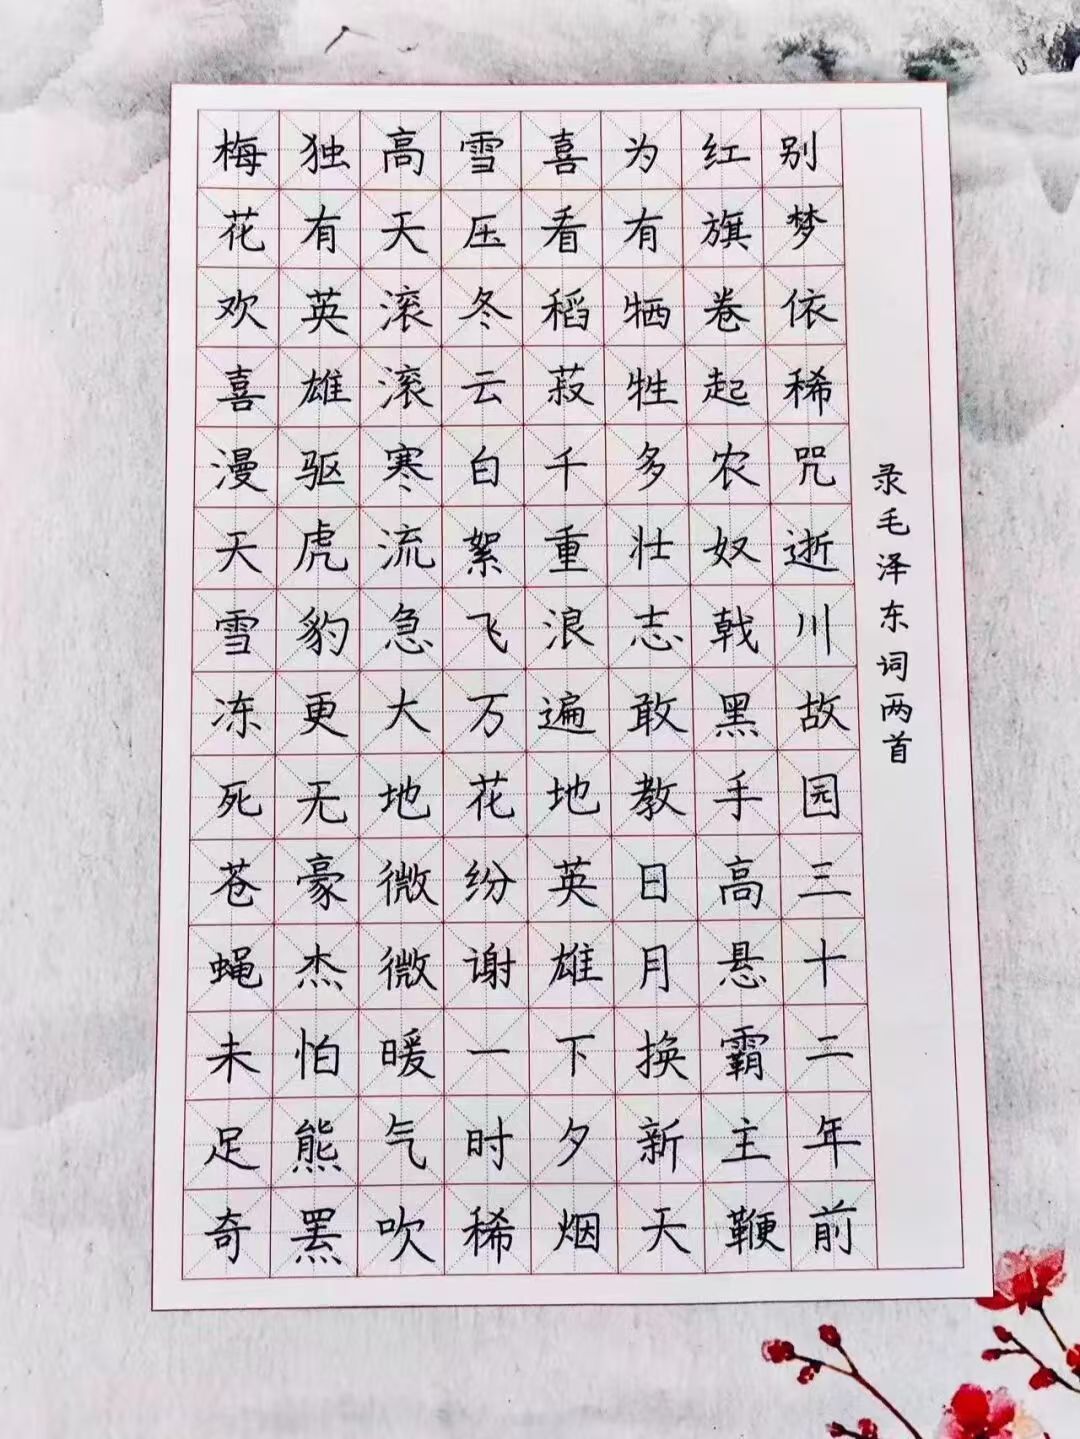 录毛泽东词两首
别梦依稀咒逝川故园三十二年前
红旗卷起农奴戟黑手高悬霸主鞭
为有牺牲多壮志敢教日月换新天
喜看稻菽千重浪遍地英雄下夕烟
雪压冬云白絮飞万花纷谢一时稀
高天滚滚寒流急大地微微暖气吹
独有英雄驱虎豹更无豪杰怕熊罴
梅花欢喜漫天雪冻死苍蝇未足奇